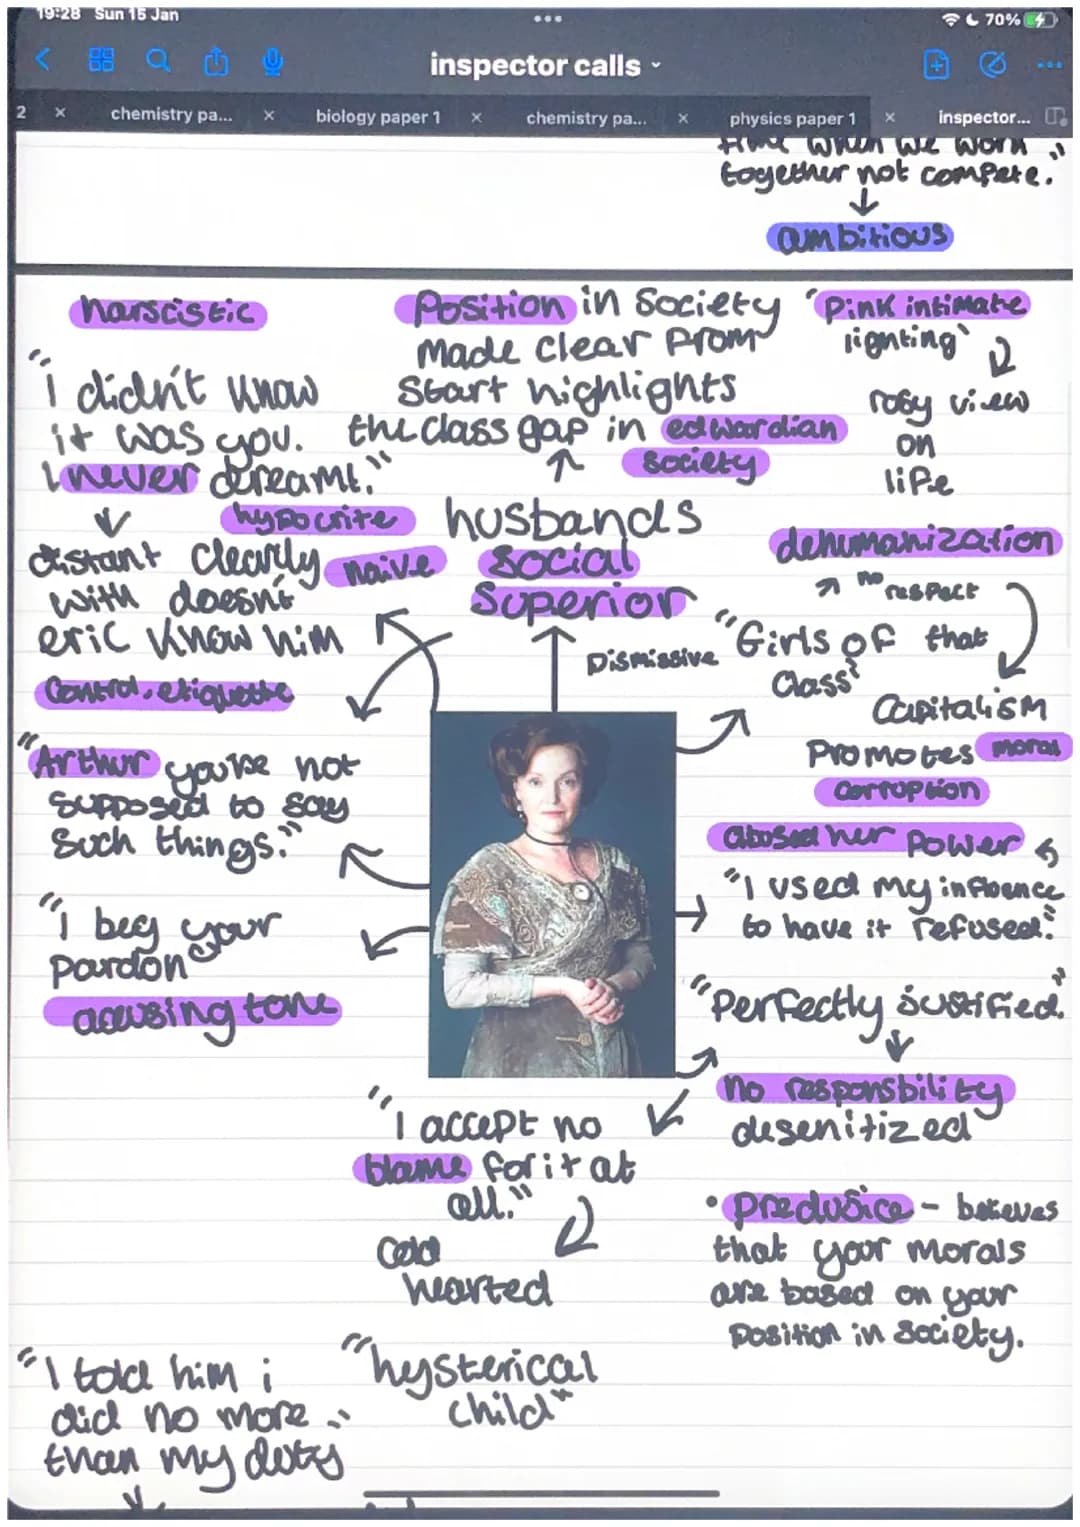 19:28 Sun 15 Jan
70%
inspector calls
2 × chemistry pa... × biology paper 1 × chemistry pa... × physics paper 1 × inspector...
time when we work
together not compete."
ambitious
narscistic
"I didn't know
it was you.
I never dreamt."
distant
with
eric
clearly
doesn't
know him
hypocrite
naive
Control, etiquette
"Arthur you're not
supposed to say
such things."
"I beg your
pardon"
accusing tone
Position in society
made clear from
start highlights
the class gap in edwardian
society
husbands
social
superior
'Pink intimate
lighting'
rosy view
on
life
dehumanization
no
respect
Dismissive
"Girls of that
class"
Capitalism
Promotes moral
corruption
abused her power
"I used my influence
to have it refused."
"Perfectly justified."
no responsbility
desenitized
"I accept no
blame for it at
all."
Cold
hearted
• predusice - believes
that your morals
are based on your
position in society.
"I told him i
did no more
than my duty"
"hysterical
child"